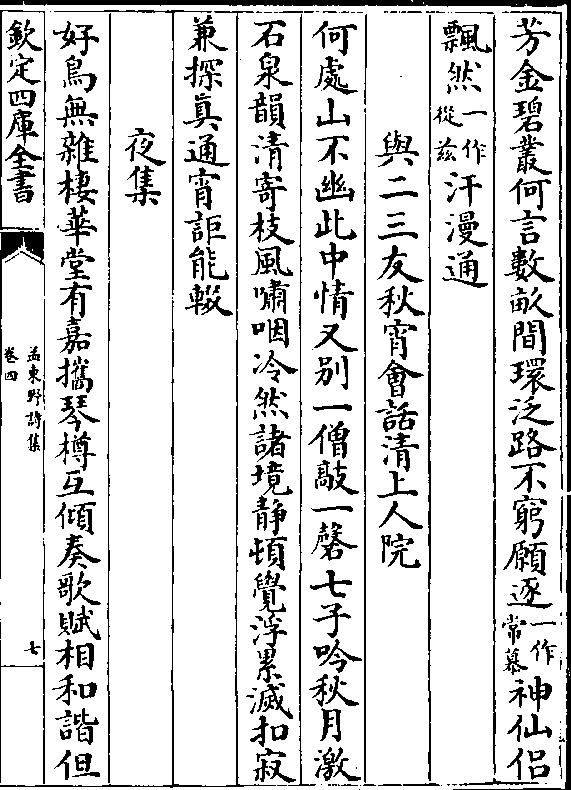 芳金碧叢何言數畝間環泛路不窮願逐一作常慕神仙侶
飄然一作從茲汗漫通
與二三友秋宵會話清上人院
何處山不幽此中情又别一僧敲一磬七子吟秋月激
石泉韻清寄枝風嘯咽泠然諸境静頓覺浮累滅扣寂
兼探真通宵詎能輟
夜集
好鳥無雜棲華堂有嘉攜琴樽互傾奏歌賦相和諧但
欽定四庫全書
孟東野詩集
卷四
七